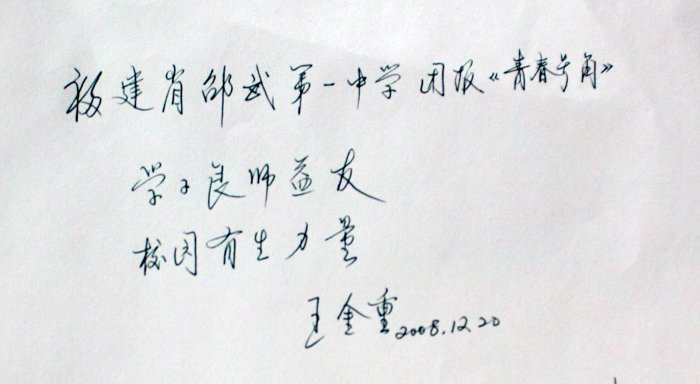 福建省邵武第一中学团报《青春号角》
学子良师益友
校园有生力量
王金重 2008.12.20